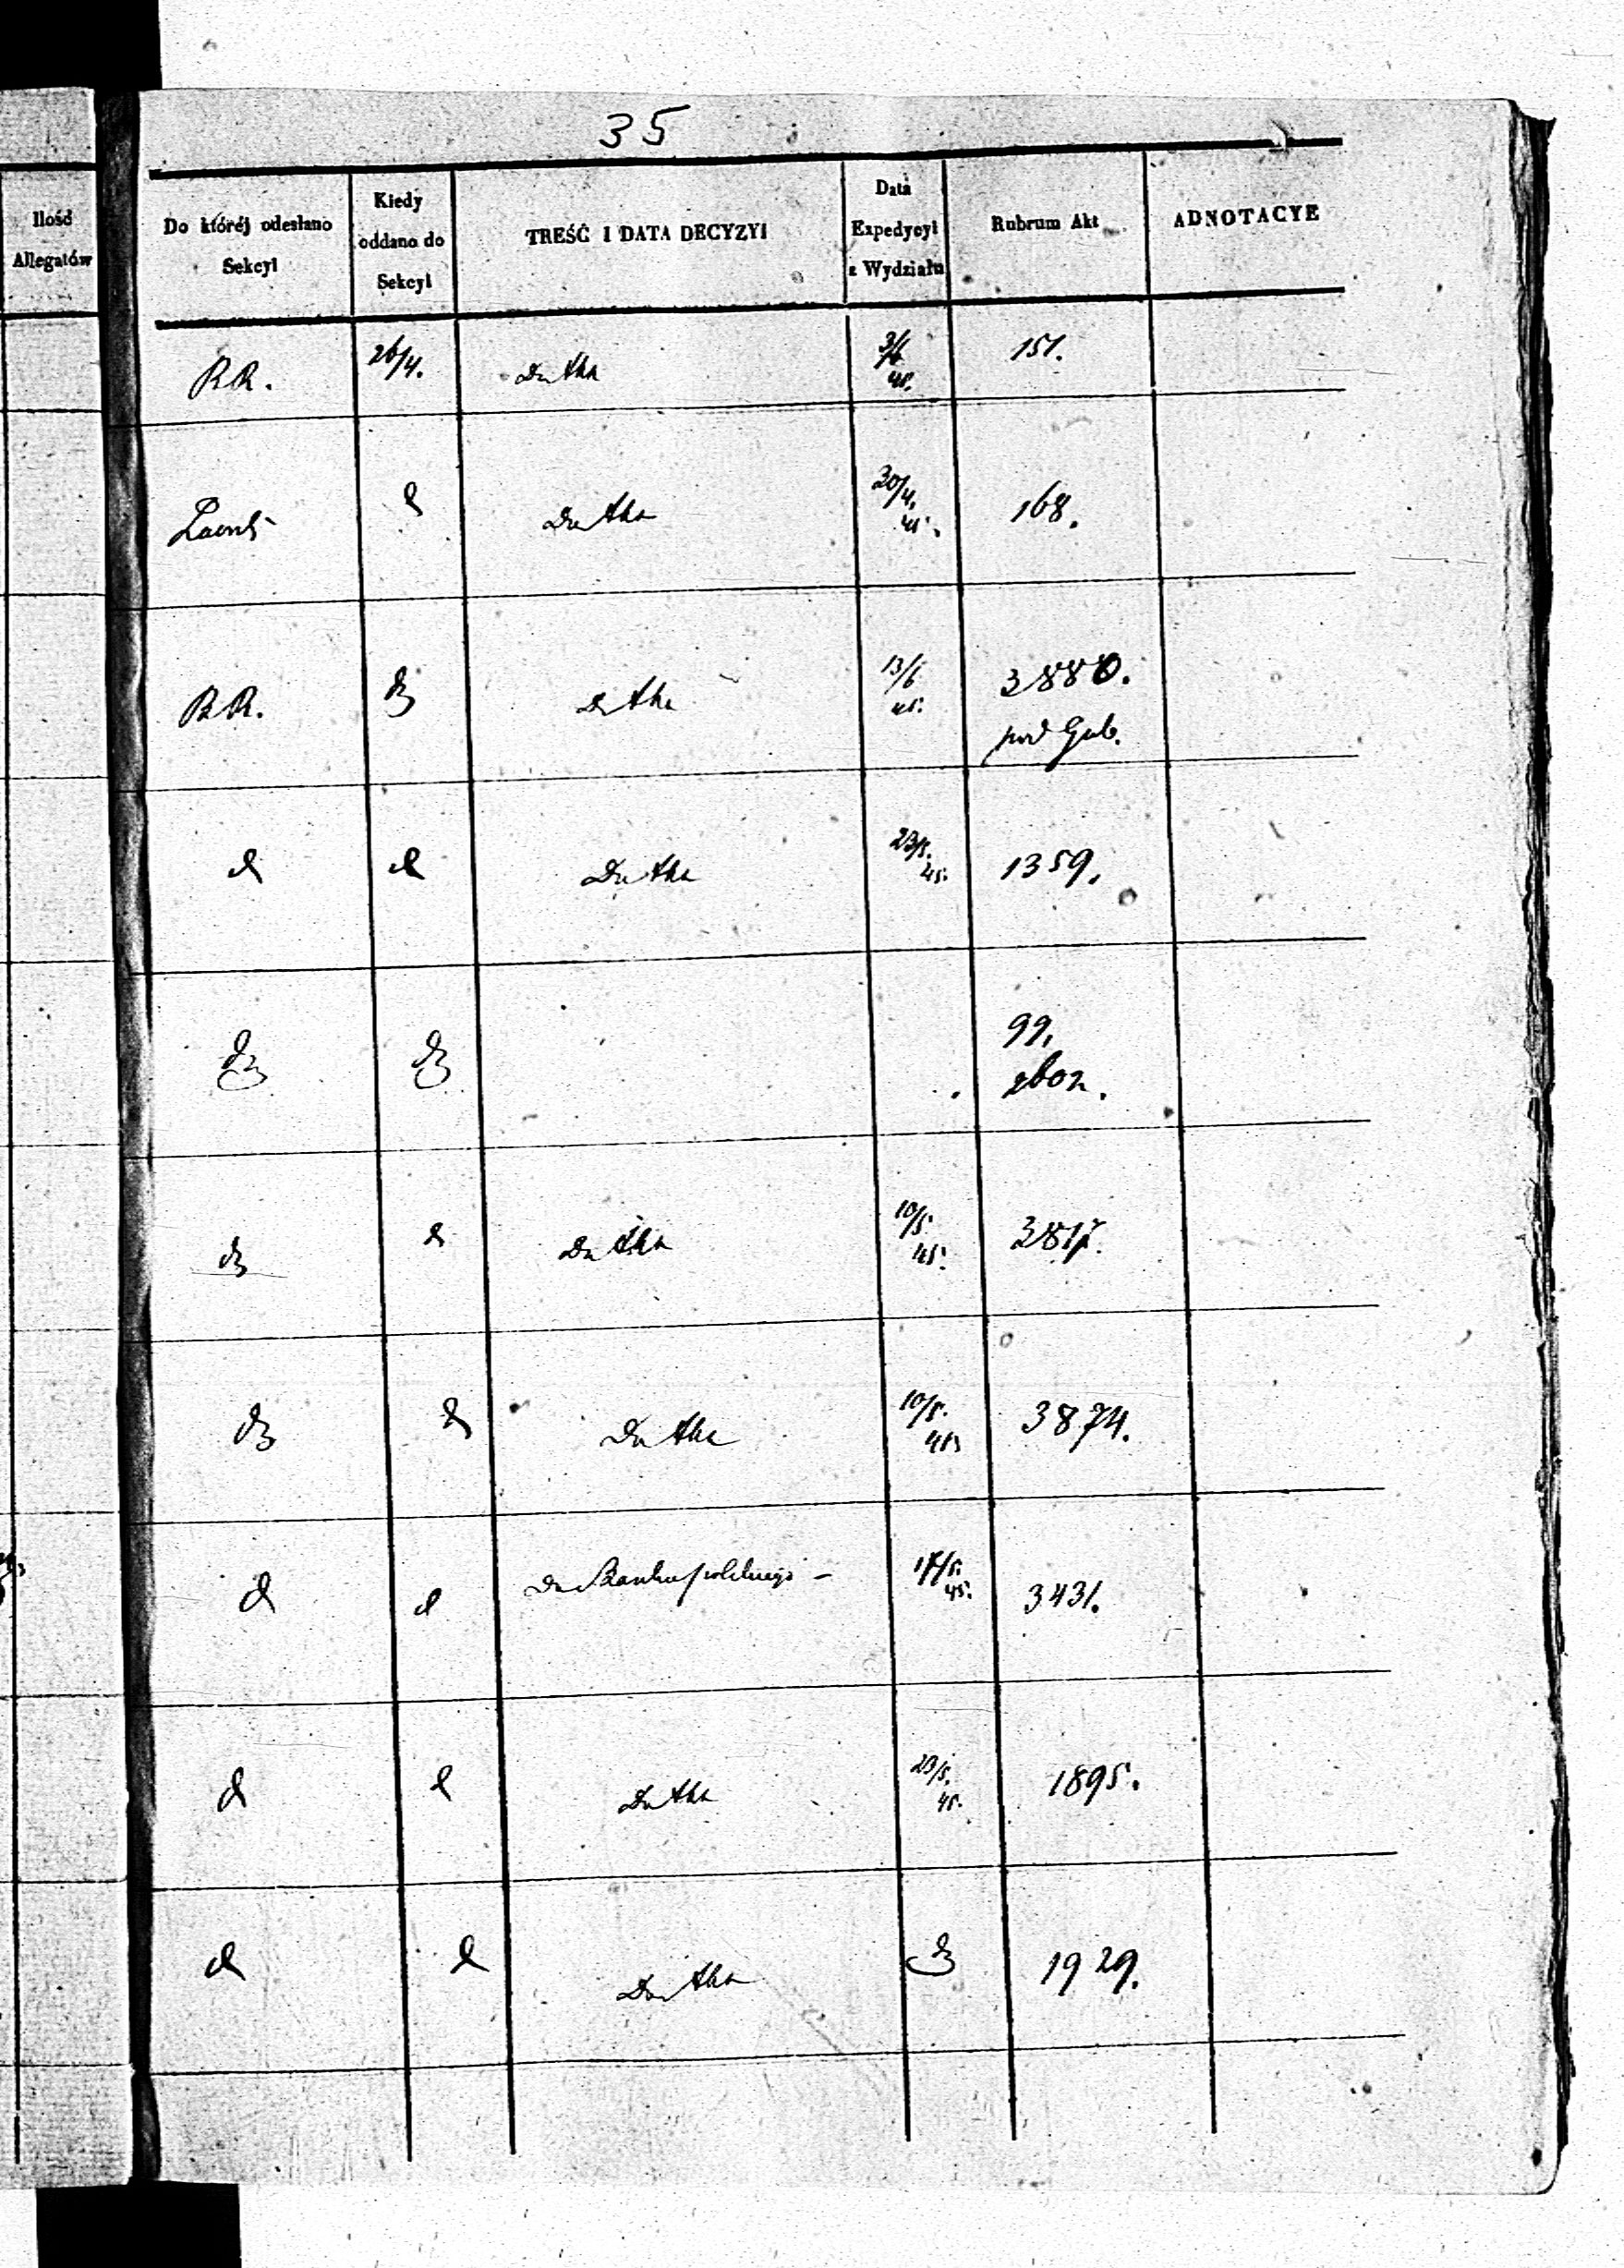 35
Ilość
Allegatów
Do któréj odesłano
Sekcyi
Kiedy
oddano do
Sekcyi
TREŚĆ I DATA DECYZYI
Data
Expedycyi
z Wydziału
Rubrum Akt
ADNOTACYE
RR. 26/4. Do Akt 3/6 45. 151.
Do Akt 30/4. 45. 168.
RR. Do Akt 13/6 45. 3880.
pod Gub.
Do Akt 23/5. 45. 1359.
99.
zboż.
Do Akt 10/5. 45. 3817.
Do Akt 10/5. 45. 3874.
Do Banku polskiego – 17/5. 45. 3431.
Do Akt 29/5. 45. 1895.
Do Akt 1929.